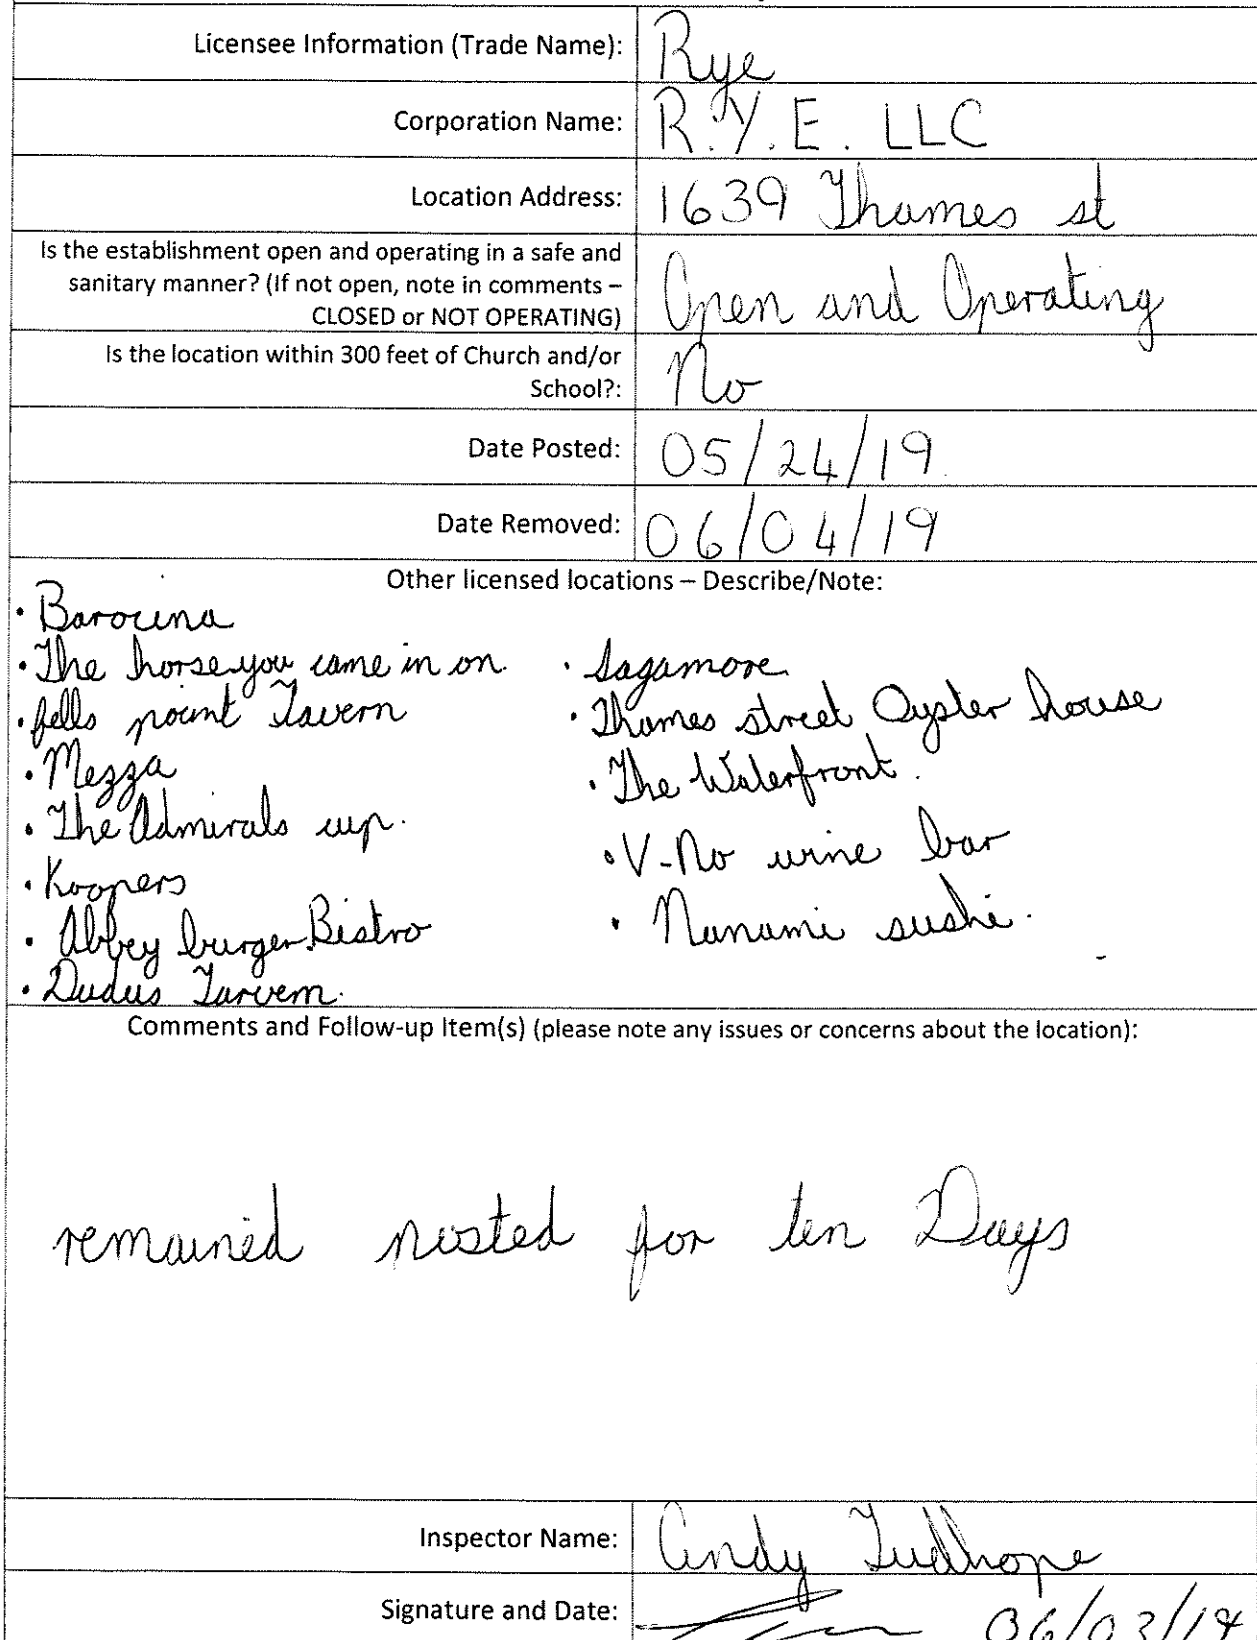 Licensee Information (Trade Name): Rye
Corporation Name: R.Y.E. LLC
Location Address: 1639 Thames st
Is the establishment open and operating in a safe and
sanitary manner? (If not open, note in comments –
CLOSED or NOT OPERATING) Open and Operating
Is the location within 300 feet of Church and/or
School?: No
Date Posted: 05/24/19
Date Removed: 06/04/19
Other licensed locations – Describe/Note:
• Barocina
• The horse you came in on
• fells point Tavern
• Mezza
• The Admirals cup.
• Koopers
• Abbey burger Bistro
• Dudus Tarvem.
• Sagamore
• Thames street Oyster house
• The Waterfront.
• V-No wine bar
• Nanami sushi.
Comments and Follow-up Item(s) (please note any issues or concerns about the location):
remained posted for ten Days
Inspector Name: Andy Tudhope
Signature and Date: 06/03/19